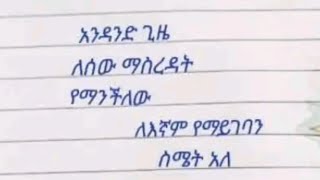 አንዳንድ ጊዜ
ለሰው ማስረዳት
የማንችለው
ለእኛም የማይገባን
ስሜት አለ